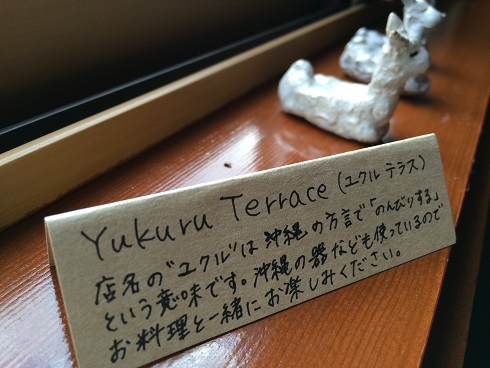 Yukuru Terrace (ユクル テラス)
店名の"ユクル"は 沖縄 の方言で「のんびりする」
という意味です。沖縄の器なども使っているので
お料理と一緒にお楽しみください。